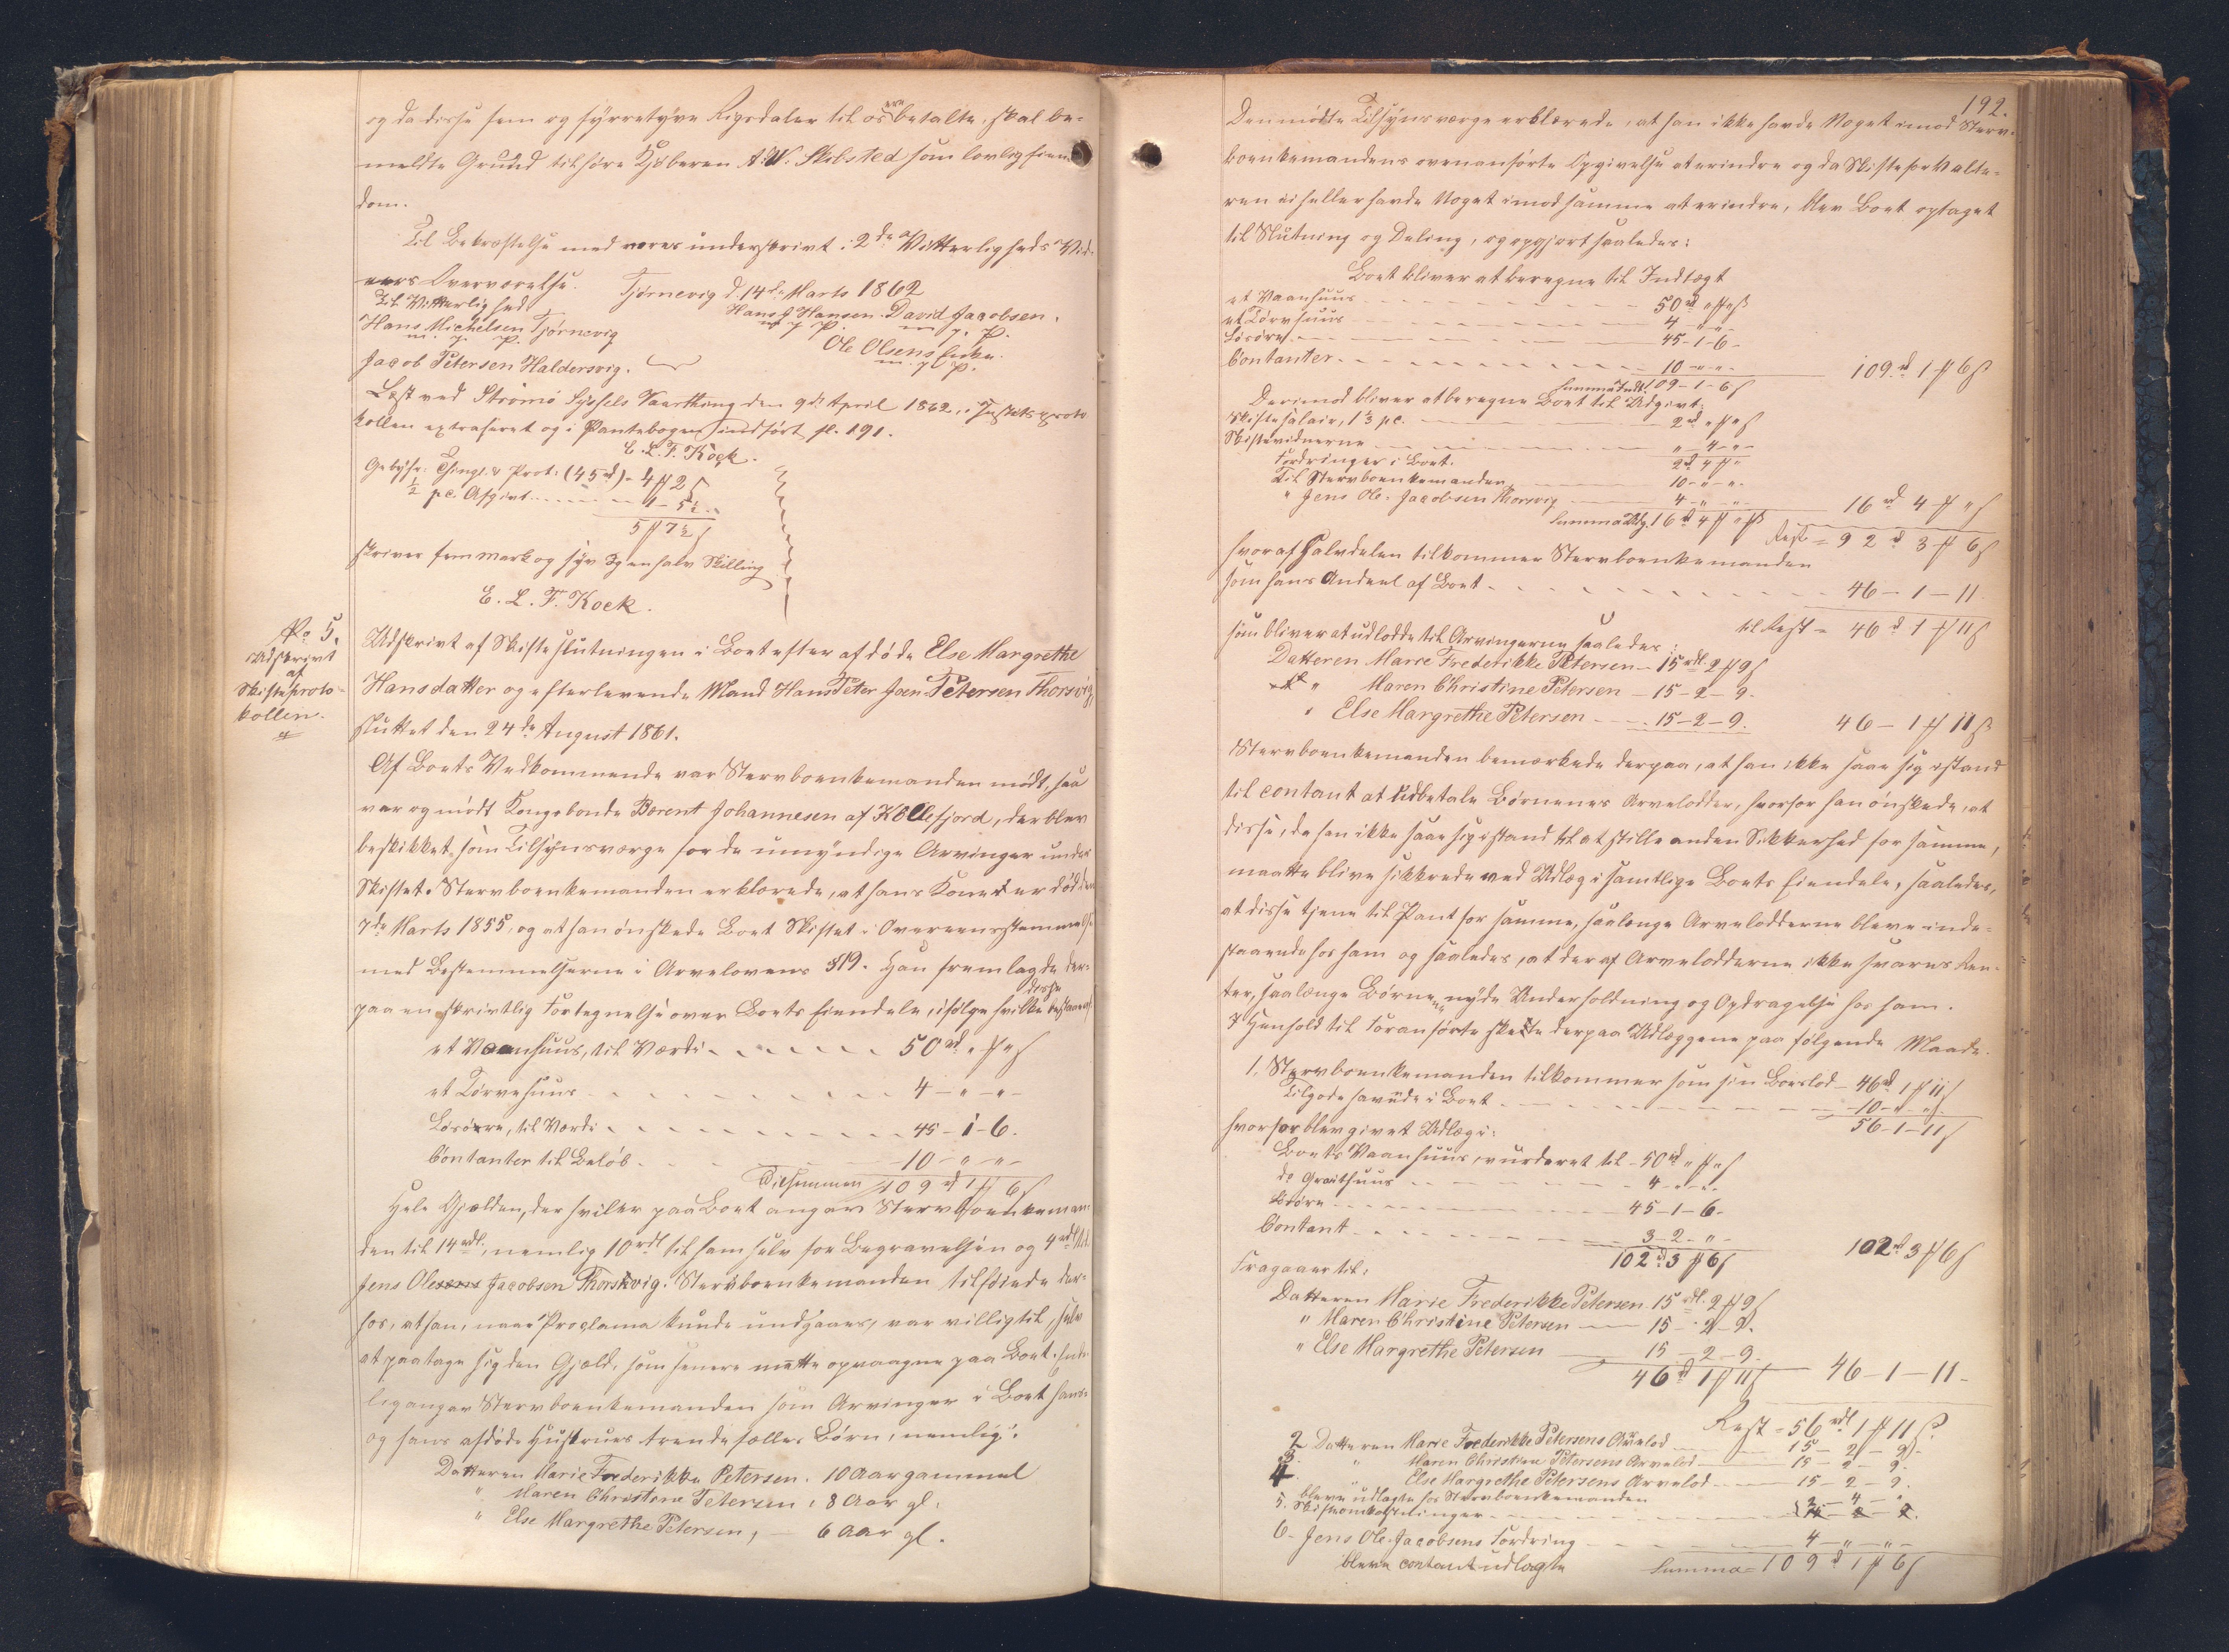 og da disse fem og fyrretyve Rigsdaler til os ere betalte, skal be-
meldte Grund tilhøre Kjøberen A. W. Skibsted som lovlig Eien
dom.
Til Bekræftelse med vores underskrivt i 2de Vitterligheds Vid-
ners Overværelse. Tjørnevig d. 14de Marts 1862
Til Vitterlighed
Hans J Hansen. David Jacobsen.
Hans Michelsen Tjørnevig
m. p. p. m. p. p.
m. p. p. Ole Olsens Enke.
Jacob Petersen Haldersvig. m. p. p.
Læst ved Strømø Syssels Vaarthing den 9de April 1862, i Justitsproto
kollen extraheret og i Pantebogen indført fl. 191.
E. L. F. Kock.
Gebyhr: Thingl. & Prot: (45 rd) - 4 ß 2 s
½ pc. Afgivt - 1 - 5½
5 ß 7½ s
skriver fem mark og syv og en halv Skilling
E. L. F. Kock.
No 5.
Udskrivt
af
Skifteproto-
kollen.
Udskrivt af Skifteslutningen i Boet efter afdøde Else Margrethe
Hansdatter og efterlevende Mand Hans Peter Joen Petersen Thorsvig,
sluttet den 24de August 1861.
Af Boets Vedkommende var Stervboenkemanden mødt, saa
var og mødt Kongsbonde Børent Johannesen af Kollefjord, der blev
beskikket som Tilsynsværge for de umyndige Arvinger under
Skiftet. Stervboenkemanden erklærede, at hans Kone er død den
7de Marts 1855, og at han ønskede Boet Skiftet i Overeensstemmelse
med Bestemmelserne i Arvelovens §19. Han fremlagde der-
paa en skrivtlig Fortegnelse over Boets Eiendele, ifølge hvilke disse bestaae af
et Vaanhuus, til Værdi 50 rd " ß " s
et Tørvehuus 4 - " - " -
Løsøre, til Værdi 45 - 1 - 6.
Contanter til Beløb 10 - " - " -
Tilsammen 109 rd 1 ß 6 s
Hele Gjælden, der hviler paa Boet angav Stervboenkeman-
den til 14 rdl., nemlig 10 rdl til ham selv for Begravelsen og 4 rdl til
Jens Ole Jacobsen Thorsvig. Stervboenkemanden tilføiede der-
hos, at han, naar Proclama kunde undgaaes, var villig til, selv
at paatage sig den Gjæld, som senere maatte opvaagne paa Boet. Ende-
lig angav Stervboenkemanden som Arvinger i Boet hans
og hans afdøde Hustrues trende fælles Børn, nemlig:
Datteren Marie Frederikke Petersen. 10 Aar gammel
" Maren Christine Petersen, 8 Aar gl.
" Else Margrethe Petersen, 6 Aar gl.
192.
Den mødte Tilsynsværge erklærede, at han ikke havde Noget imod Sterv-
boenkemandens ovenanførte Opgivelse at erindre og da Skifteforvalte-
ren ei heller havde Noget imod samme at erindre, blev Boet optaget
til Slutning og Deling, og opgjort saaledes:
Boet bliver at beregne til Indtægt
et Vaanhuus 50 rd " ß " s
et Tørvehuus 4 - " - "
Løsøre 45 - 1 - 6 -
Contanter 10 - " - " -
Summa Indt. 109 - 1 - 6 s 109 rd 1 ß 6 s
Derimod bliver at beregne Boet til Udgivt:
Skiftesalair, 1⅓ pc. 2 rd " ß " s
Skiftevidnerne " - 4 - " -
2 rd 4 ß "
Fordringer i Boet.
Til Stervboenkemanden 10 - " - " -
" Jens Ole Jacobsen Thorsvig 4 - " - "
Summa Udg. 16 rd 4 ß " s 16 rd 4 ß " s
Rest = 92 rd 3 ß 6 s
hvoraf Halvdelen tilkommer Stervboenkemanden
som hans Andeel af Boet 46 - 1 - 11.
til Rest = 46 rd 1 ß 11 s
som bliver at udlodde til Arvingerne saaledes:
Datteren Marie Frederikke Petersen - 15 rdl. 2 ß 9 s
" Maren Christine Petersen - 15 - 2 - 9.
" Else Margrethe Petersen - 15 - 2 - 9. 46 - 1 ß 11 s
Stervboenkemanden bemærkede derpaa, at han ikke saae sig istand
til contant at udbetale Børnenes Arvelodder, hvorfor han ønskede, at
disse, da han ikke saae sig istand til at stille anden Sikkerhed for samme,
maatte blive sikkrede ved Udlæg i samtlige Boets Eiendele, saaledes,
at disse tjene til Pant for samme, saalænge Arvelodderne bleve inde-
staaende hos ham og saaledes, at der af Arvelodderne ikke svares Ren-
ter, saalænge Børnene nyde Underholdning og Opdragelse hos ham.
I Henhold til Foranførte skete derpaa Udlæggene paa følgende Maade.
1. Stervboenkemanden tilkommer som sin Boeslod - 46 rd 1 ß 11 s
Tilgodehavende i Boet 10 - " - " s
56 - 1 - 11 s
hvorfor blev givet Udlæg i:
Boets Vaanhuus, vurderet til - 50 rd " ß " s
do Graithuus 4 - " - " -
Løsøre 45 - 1 - 6 -
Contant 3 - 2 - " -
102 rd 3 ß 6 s 102 rd 3 ß 6 s
Fragaaer til:
Datteren Marie Frederikke Petersen 15 rdl. 2 ß 9 s
" Maren Christine Petersen 15 - 2 - 9.
" Else Margrethe Petersen 15 - 2 - 9.
46 rd 1 ß 11 s 46 - 1 - 11 -
Rest = 56 rdl 1 ß 11 s
2 Datteren Marie Frederikke Petersens Arvelod 15 - 2 - 9 -
3. " Maren Christine Petersens Arvelod 15 - 2 - 9.
4. " Else Margrethe Petersens Arvelod 15 - 2 - 9.
bleve udlagte hos Stervboenkemanden
5. Skifteomkostninger 2 - 4 - "
6 - Jens Ole Jacobsens Fordring 4 - " - " -
bleve contant udlagte Summa = 109 rd 1 ß 6 s